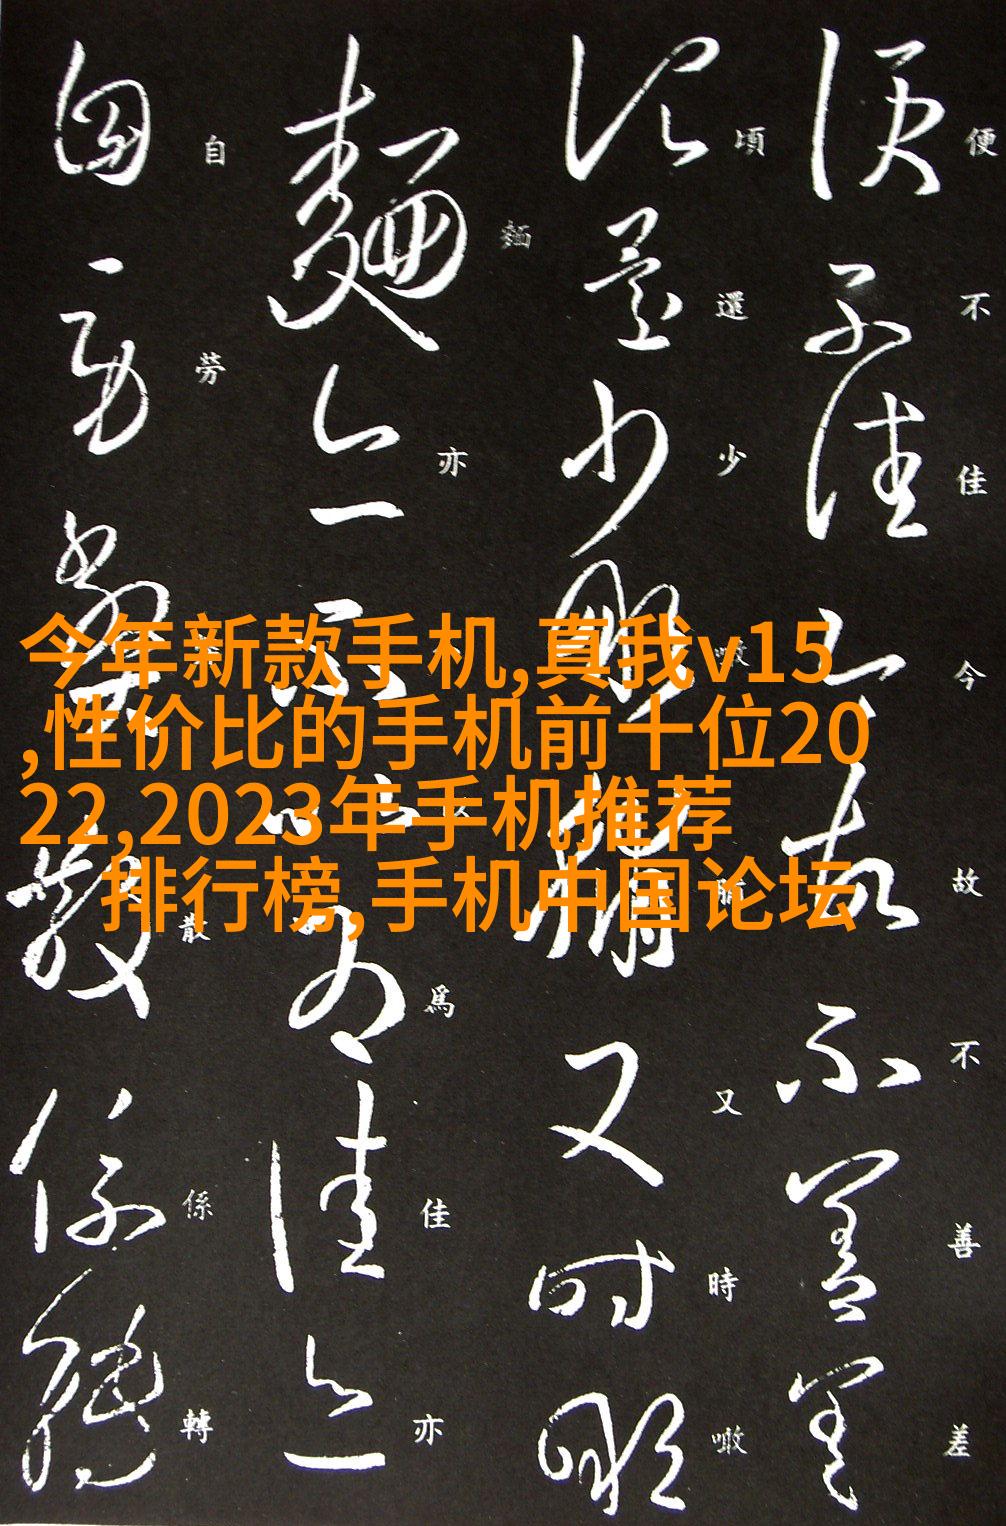 今年新款手机,真我v15
,性价比的手机前十位20
22,2023年手机推荐
排行榜,手机中国论坛
便不佳今故不善差
頃還少噉脯又時噉
麵亦以為佳亦
自勞散係轉